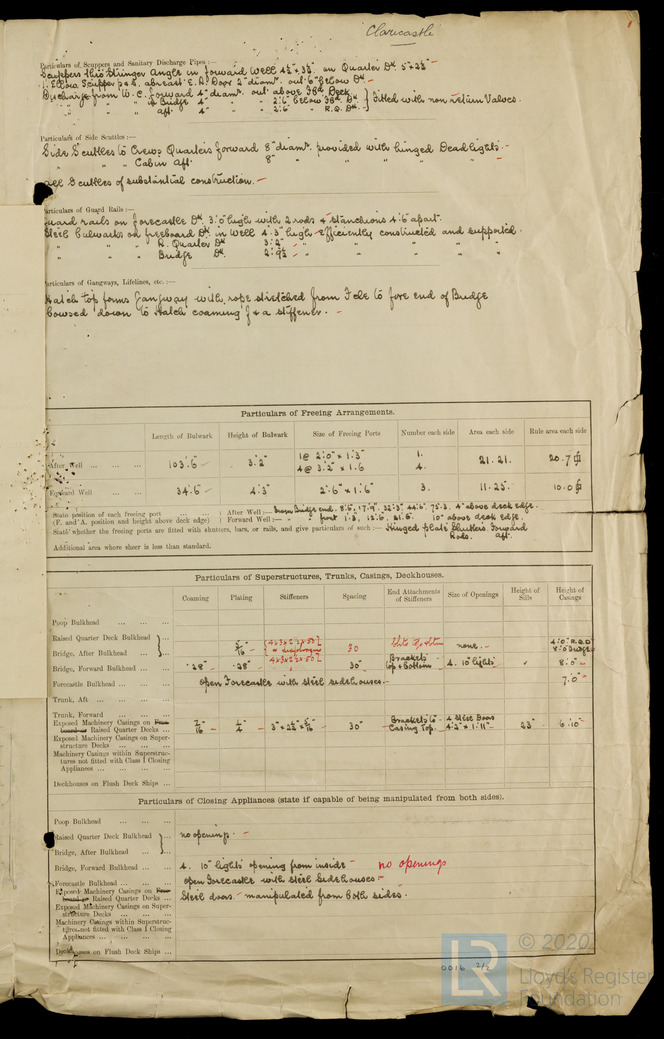 Clarecastle
Particulars of Scuppers and Sanitary Discharge Pipes :—
Scuppers thro Stringer Angle in forward Well 4½" x 3½" on Quarter Dk 5" x 2½"
Elbow Scupper p & s. abreast E.R. Door 2" diamr. out 6" below Dk
Discharge from W.C. forward 4" diamr. out above Dk
" " " Bridge 4" " " 2'.6" below Dk } Fitted with non return Valves.
" " " aft. 4" " " 2'.6" " R.Q. Dk
Particulars of Side Scuttles :—
Side Scuttles to Crews Quarters forward 8" diamr. provided with hinged Deadlights.
" " " Cabin Aft. 8" " " " "
All Scuttles of substantial construction.
Particulars of Guard Rails :—
Guard rails on forecastle Dk 3'.0" high with 2 rods & stanchions 4'.6" apart.
Steel bulwarks on freeboard Dk in Well 4'.3" high efficiently constructed and supported.
" " " R. Quarter Dk 3'.2" " " " "
" " " Bridge Dk. 2'.9½ " " " "
Particulars of Gangways, Lifelines, etc. :—
Hatch top forms gangway with rope stretched from Fcle to fore end of Bridge
bowsed down to Hatch coaming & a stiffener.
Particulars of Freeing Arrangements.
Length of Bulwark Height of Bulwark Size of Freeing Ports Number each side Area each side Rule area each side
After Well 103'.6" 3'.2" 1 @ 2'.0" x 1'.3" 1. 21.21. 20.7
4 @ 3'.2" x 1.6 4.
Forward Well 34'.6" 4'.3" 2'.6" x 1'.6" 3. 11.25. 10.0
State position of each freeing port (F. and A. position and height above deck edge) After Well :— from Bridge end. 8'.6", 17'.9", 32'.3" 44'.6", 75.3. 4" above deck edge.
Forward Well :— " " front 1'.3, 12'.6, 21.6. 10" above deck edge.
State whether the freeing ports are fitted with shutters, bars, or rails, and give particulars of such :— Hinged plate Shutters Forward
Rods. aft.
Additional area where sheer is less than standard.
Particulars of Superstructures, Trunks, Casings, Deckhouses.
Coaming Plating Stiffeners Spacing End Attachments of Stiffeners Size of Openings Height of Sills Height of Casings
Poop Bulkhead
Raised Quarter Deck Bulkhead 4'.0" R.Q.D
Bridge, After Bulkhead 5/16 30 none. 8'.0" Bridge
Bridge, Forward Bulkhead .28" .28" 30" Brackets top & bottom 4. 10" lights 8'.0"
Forecastle Bulkhead Open Forecastle with Steel sidehouses. 7'.0"
Trunk, Aft
Trunk, Forward
Exposed Machinery Casings on Free-board or Raised Quarter Decks 7/16 1/4 3" x 2½" x 5/16 30" Brackets to Casing Top. 4 Steel Doors 4'.2" x 1'.11" 23" 6'.10"
Exposed Machinery Casings on Superstructure Decks
Machinery Casings within Superstructures not fitted with Class I Closing Appliances
Deckhouses on Flush Deck Ships
Particulars of Closing Appliances (state if capable of being manipulated from both sides).
Poop Bulkhead
Raised Quarter Deck Bulkhead no opening.
Bridge, After Bulkhead
Bridge, Forward Bulkhead 4. 10" lights opening from inside no openings
Forecastle Bulkhead Open Forecastle with Steel Sidehouses
Exposed Machinery Casings on Free-board or Raised Quarter Decks Steel doors. manipulated from both sides.
Exposed Machinery Casings on Superstructure Decks
Machinery Casings within Superstructures not fitted with Class I Closing Appliances
Deckhouses on Flush Deck Ships
0016 2/2
LR
© 2020
Lloyd's Register
Foundation